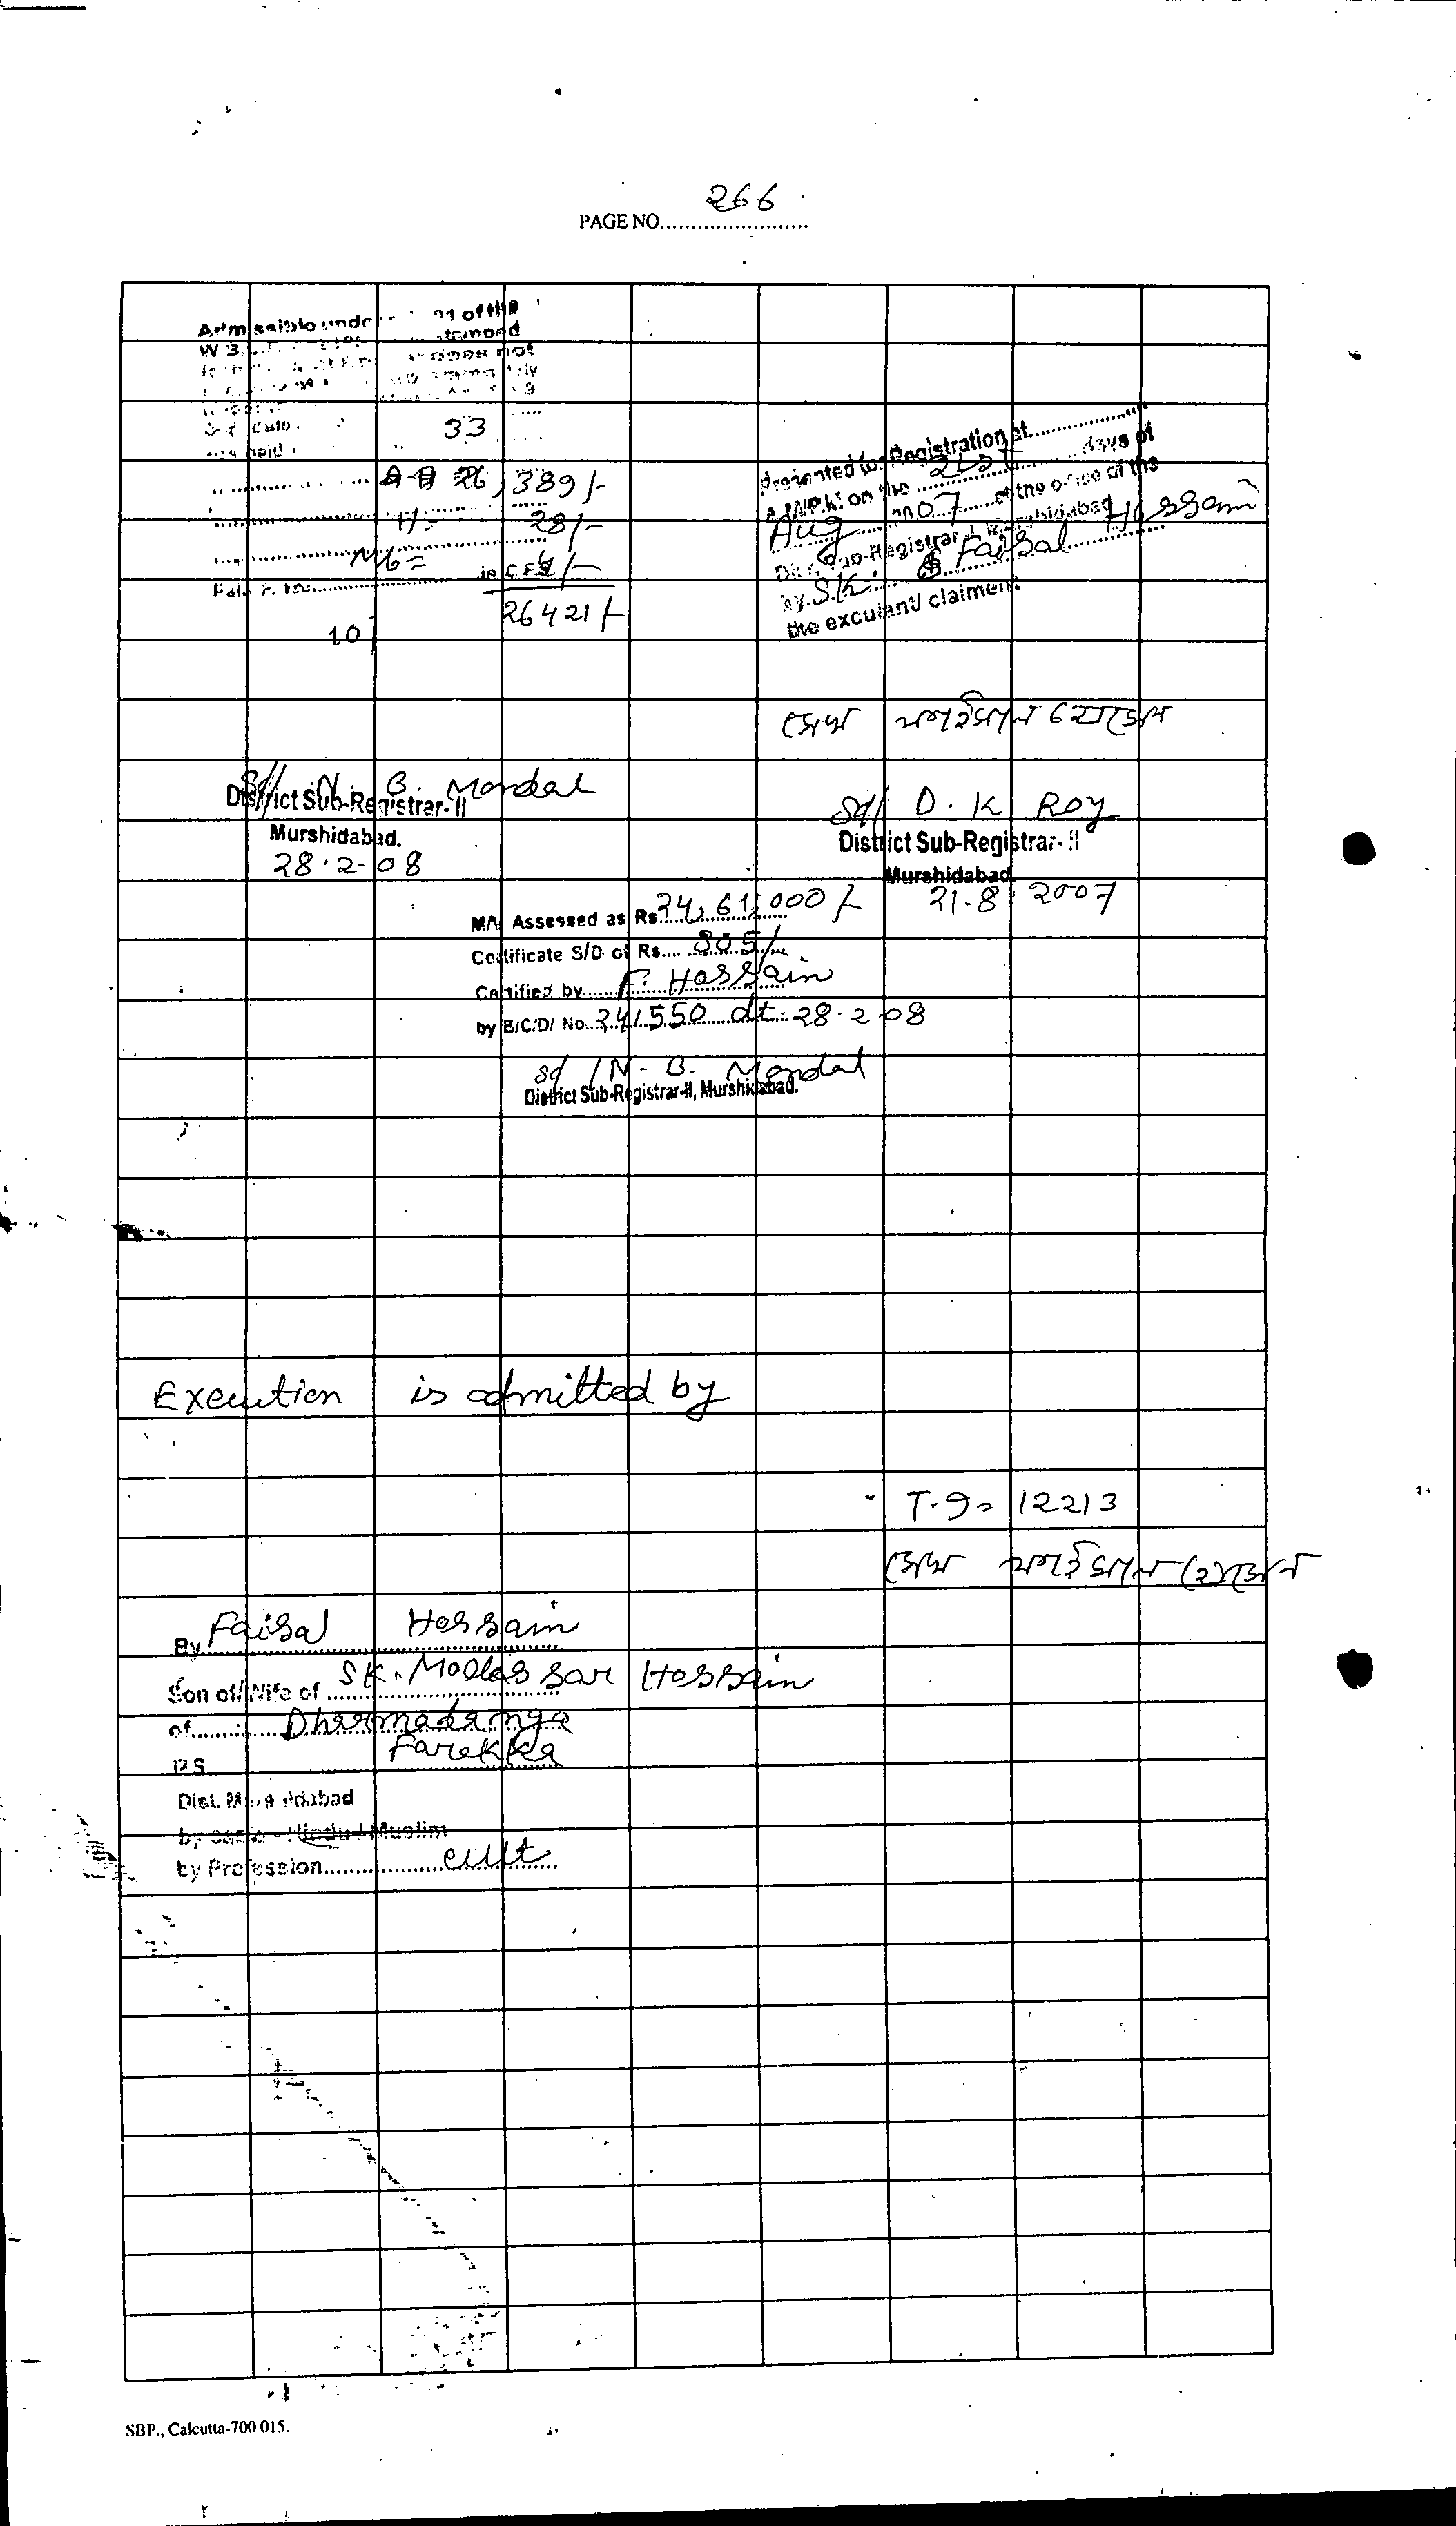 266
PAGE NO.
Admissible under of the
stamped
does not
33
A-B 26,389/-
H = 28/-
Mb = 4/-
26421/-
10/
Presented for Registration at
days of
A.M/P.M. on the 21st
Aug 2007 at the office of the
Dist. Sub-Registrar-II, Murshidabad
by SK. Faisal Hossain
the excutant/ claiment
সেখ ফাইসাল হোসেন
Sd/ N. B. Mondal
District Sub-Registrar- II
Murshidabad.
28.2.08
Sd/ D. K Roy
District Sub-Registrar- II
Murshidabad
21-8 2007
M/V Assessed as Rs 24,61,000/-
Certificate S/D of Rs 305/-
Certified by F. Hossain
by B/C/D/ No. 241550 dt. 28.2.08
Sd/ N. B. Mondal
District Sub-Registrar-II, Murshidabad.
Execution is admitted by
T.9= 12213
সেখ ফাইসাল হোসেন
By Faisal Hossain
Son of/ Wife of SK. Modassar Hossain
of Dharmadanga
P.S. Farakka
Dist. Murshidabad
by caste - Hindu / Muslim
by Profession cult
SBP., Calcutta-700 015.